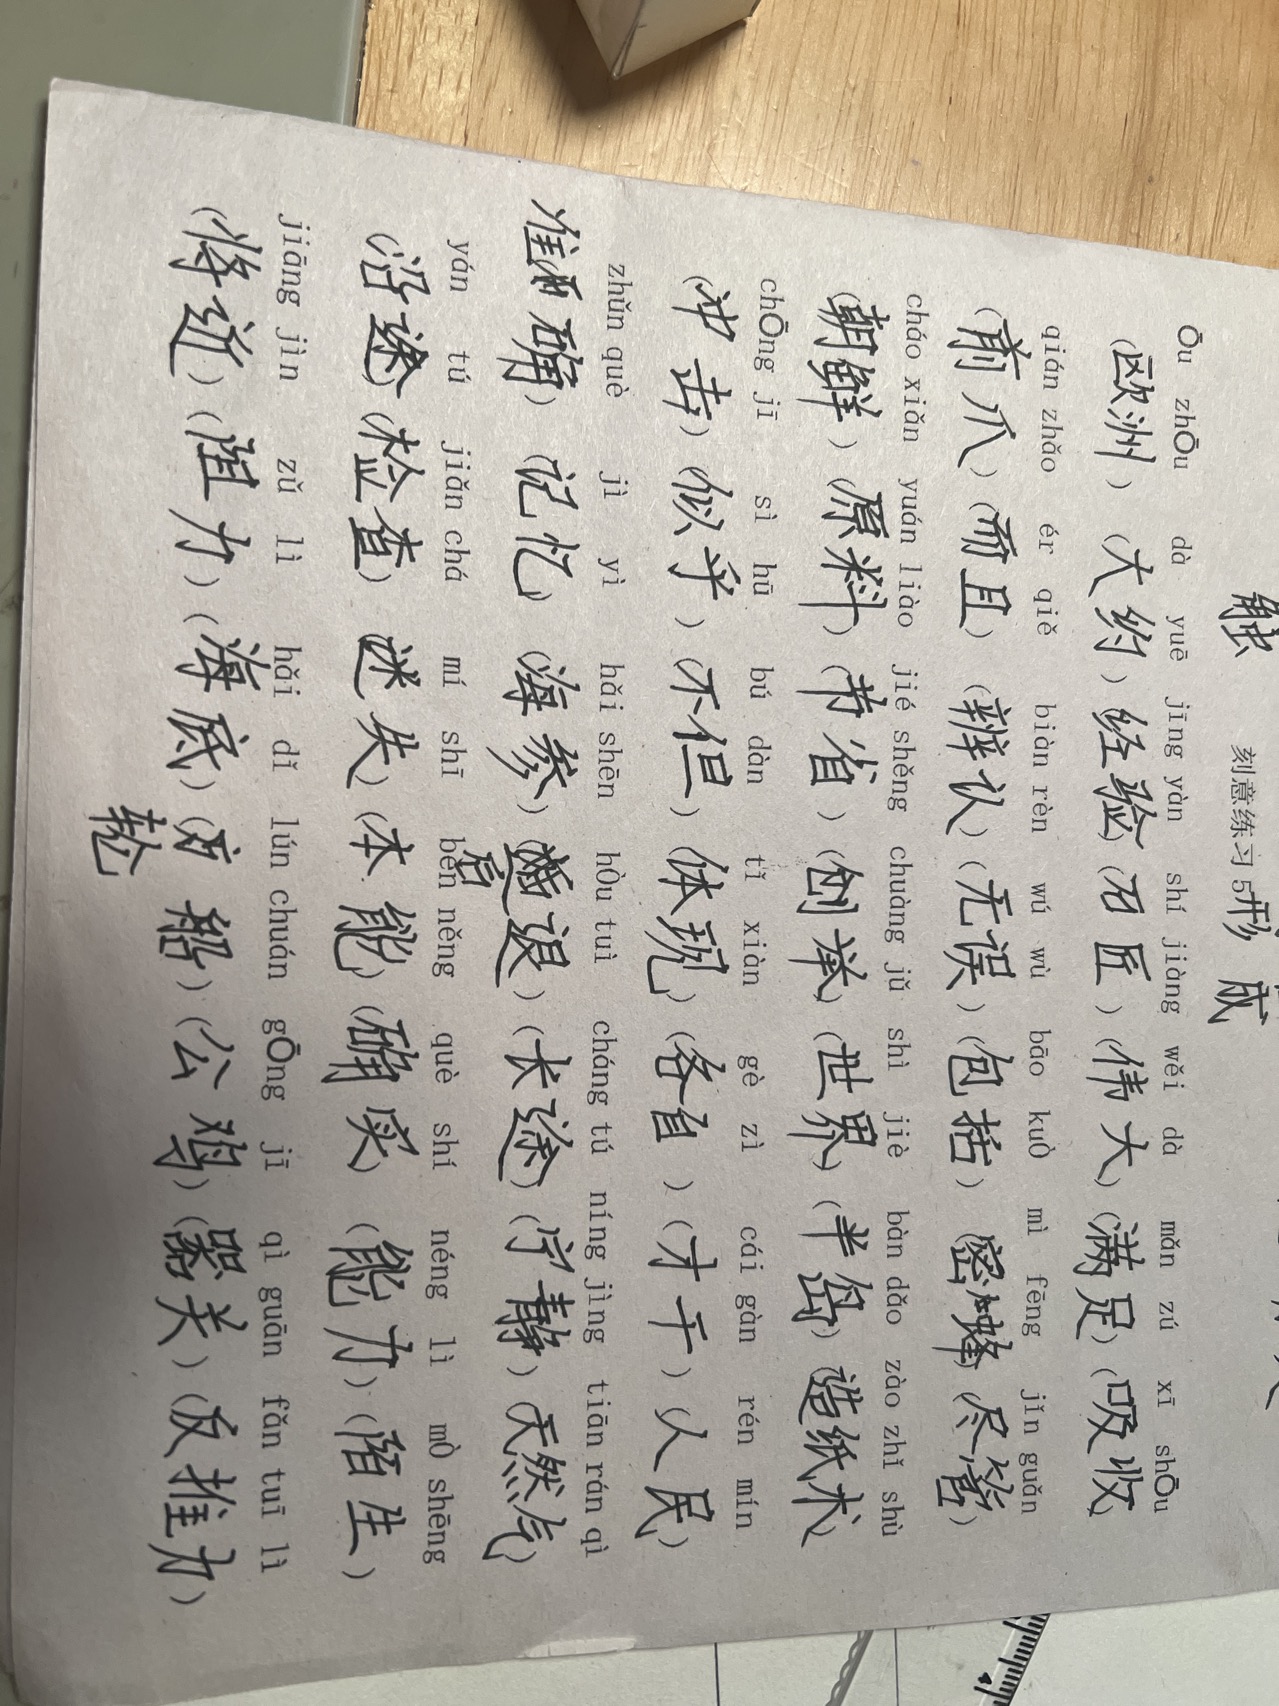 触
刻意练习 5 形成
Ōu zhŌu dà yuē jīng yàn shí jiàng wěi dà mǎn zú xī shŌu
(欧洲) (大约) (经验) (石匠) (伟大) (满足) (吸收
qián zhǎo ér qiě biàn rèn wú wù bāo kuÒ mì fēng jǐn guǎn
(前爪) (而且) (辨认) (无误) (包括) (密蜂) (尽管)
cháo xiǎn yuán liào jié shěng chuàng jǔ shì jiè bàn dǎo zào zhǐ shù
(朝鲜) (原料) (节省) (创举) (世界) (半岛) (造纸术)
chŌng jī sì hū bú dàn tǐ xiàn gè zì cái gàn rén mín
(冲击) (似乎) (不但) (体现) (各自) (才干) (人民)
zhǔn què jì yì hǎi shēn hÒu tuì cháng tú níng jìng tiān rán qì
准确) (记忆) (海参) (后退) (长途) (宁静) (天然气)
yán tú jiǎn chá mí shī běn něng què shí néng lì mÒ shēng
(沿途) (检查) 迷失) (本能) (确实) (能力) (陌生)
jiāng jìn zǔ lì hǎi dǐ lún chuán gŌng jī qì guān fǎn tuī lì
(将近) (阻力) (海底) (轮船) (公鸡) (器关) (反推力)